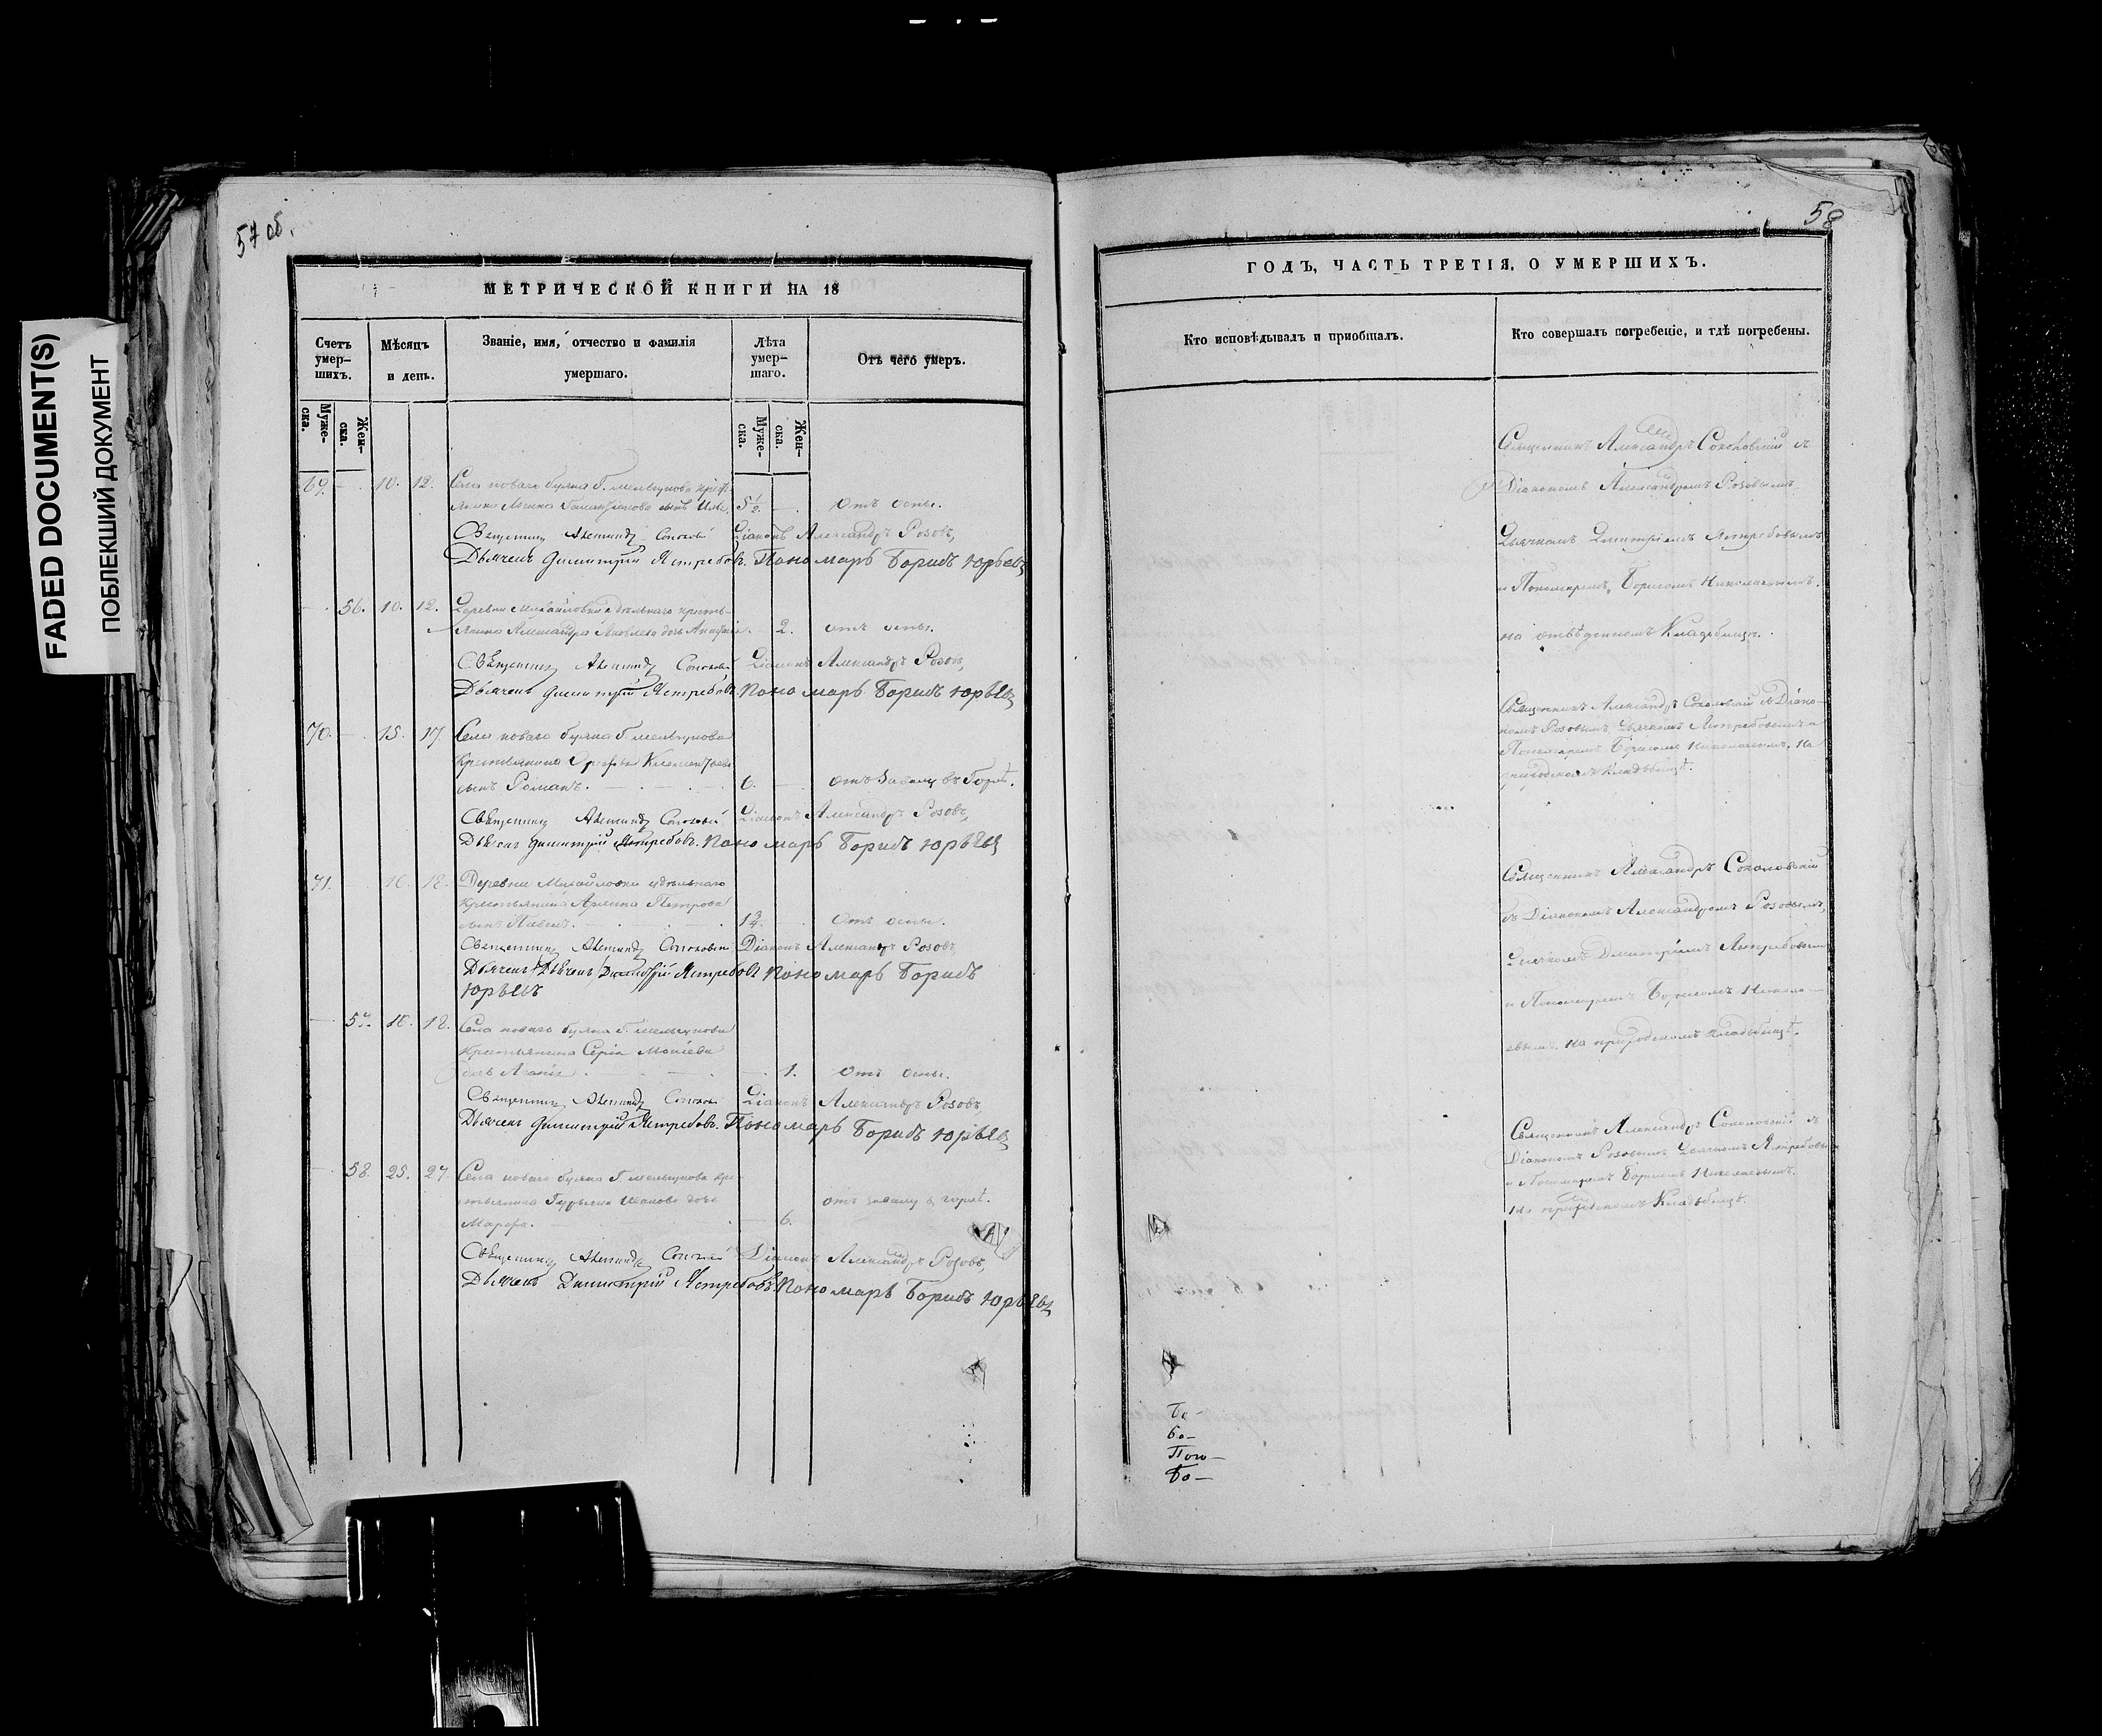 FADED DOCUMENT(S)
ПОБЛЕКШИЙ ДОКУМЕНТ
57 об.
МЕТРИЧЕСКОЙ КНИГИ НА 18
Счетъ умер-шихъ.
Мѣсяцъ и день.
Званіе, имя, отчество и фамилія умершаго.
Лѣта умер-шаго.
Отъ чего умеръ.
Муже-ска.
Жен-ска.
Муже-ска.
Жен-ска.
69. — 10. 12. Села новаго буяна Г. мельгунова крест-
янина сынъ 5 1/2. — Отъ оспы.
Священникъ Александръ Діаконъ Александръ Розовъ,
Дьячекъ Димитрій Ястребовъ. Пономарь Борисъ Юрьевъ
— 56. 10. 12. Деревни Михайловки удѣльнаго кресть-
янина Александра Яковлева дочь — 2. отъ оспы.
Священникъ Александръ Діаконъ Александръ Розовъ,
Дьячекъ Димитрій Ястребовъ Пономарь Борисъ Юрьевъ
70. — 15. 17. Села новаго буяна Г. мельгунова
Крестьянина
сынъ Романъ. 6. — отъ въ Горлѣ.
Священникъ Александръ Діаконъ Александръ Розовъ,
Дьячекъ Димитрій Ястребовъ. Пономарь Борисъ Юрьевъ
71. — 16. 18. Деревни Михайловки удѣльнаго
Крестьянина Петрова
сынъ Павелъ. 1 3/4. — Отъ оспы.
Священникъ Александръ Діаконъ Александръ Розовъ,
Дьячекъ Дьячекъ Димитрій Ястребовъ Пономарь Борисъ
Юрьевъ
— 57. 16. 18. Села новаго буяна Г. мельгунова
Крестьянина
дочь — 1. Отъ оспы.
Священникъ Александръ Діаконъ Александръ Розовъ,
Дьячекъ Димитрій Ястребовъ. Пономарь Борисъ Юрьевъ
— 58. 25. 27. Села новаго буяна Г. мельгунова кре-
стьянина Иванова дочь отъ горлѣ.
Марфа. — 6.
Священникъ Александръ Діаконъ Александръ Розовъ,
Дьячекъ Димитрій Ястребовъ. Пономарь Борисъ Юрьевъ
58
ГОДЪ, ЧАСТЬ ТРЕТІЯ, О УМЕРШИХЪ.
Кто исповѣдывалъ и пріобщалъ.
Кто совершалъ погребеніе, и гдѣ погребены.
Священникъ Александръ Соколовскій съ
Діакономъ Александромъ Розовымъ,
Дьячкомъ Димитріемъ Ястребовымъ
и Пономаремъ Борисомъ Николаевымъ.
на отвѣденномъ Кладбищѣ.
Священникъ Александръ Соколовскій съ Діако-
номъ Розовымъ, Дьячкомъ Ястребовымъ и
Пономаремъ Борисомъ Николаевымъ. На
приходскомъ Кладбищѣ.
Священникъ Александръ Соколовскій
съ Діакономъ Александромъ Розовымъ,
Дьячкомъ Димитріемъ Ястребовымъ
и Пономаремъ Борисомъ Никола-
евымъ. На приходскомъ кладбищѣ.
Священникъ Александръ Соколовскій съ
Діакономъ Розовымъ, Дьячкомъ Ястребовымъ
и Пономаремъ Борисомъ Николаевымъ.
На приходскомъ Кладбищѣ.
Бо-
Поно-
Бо-